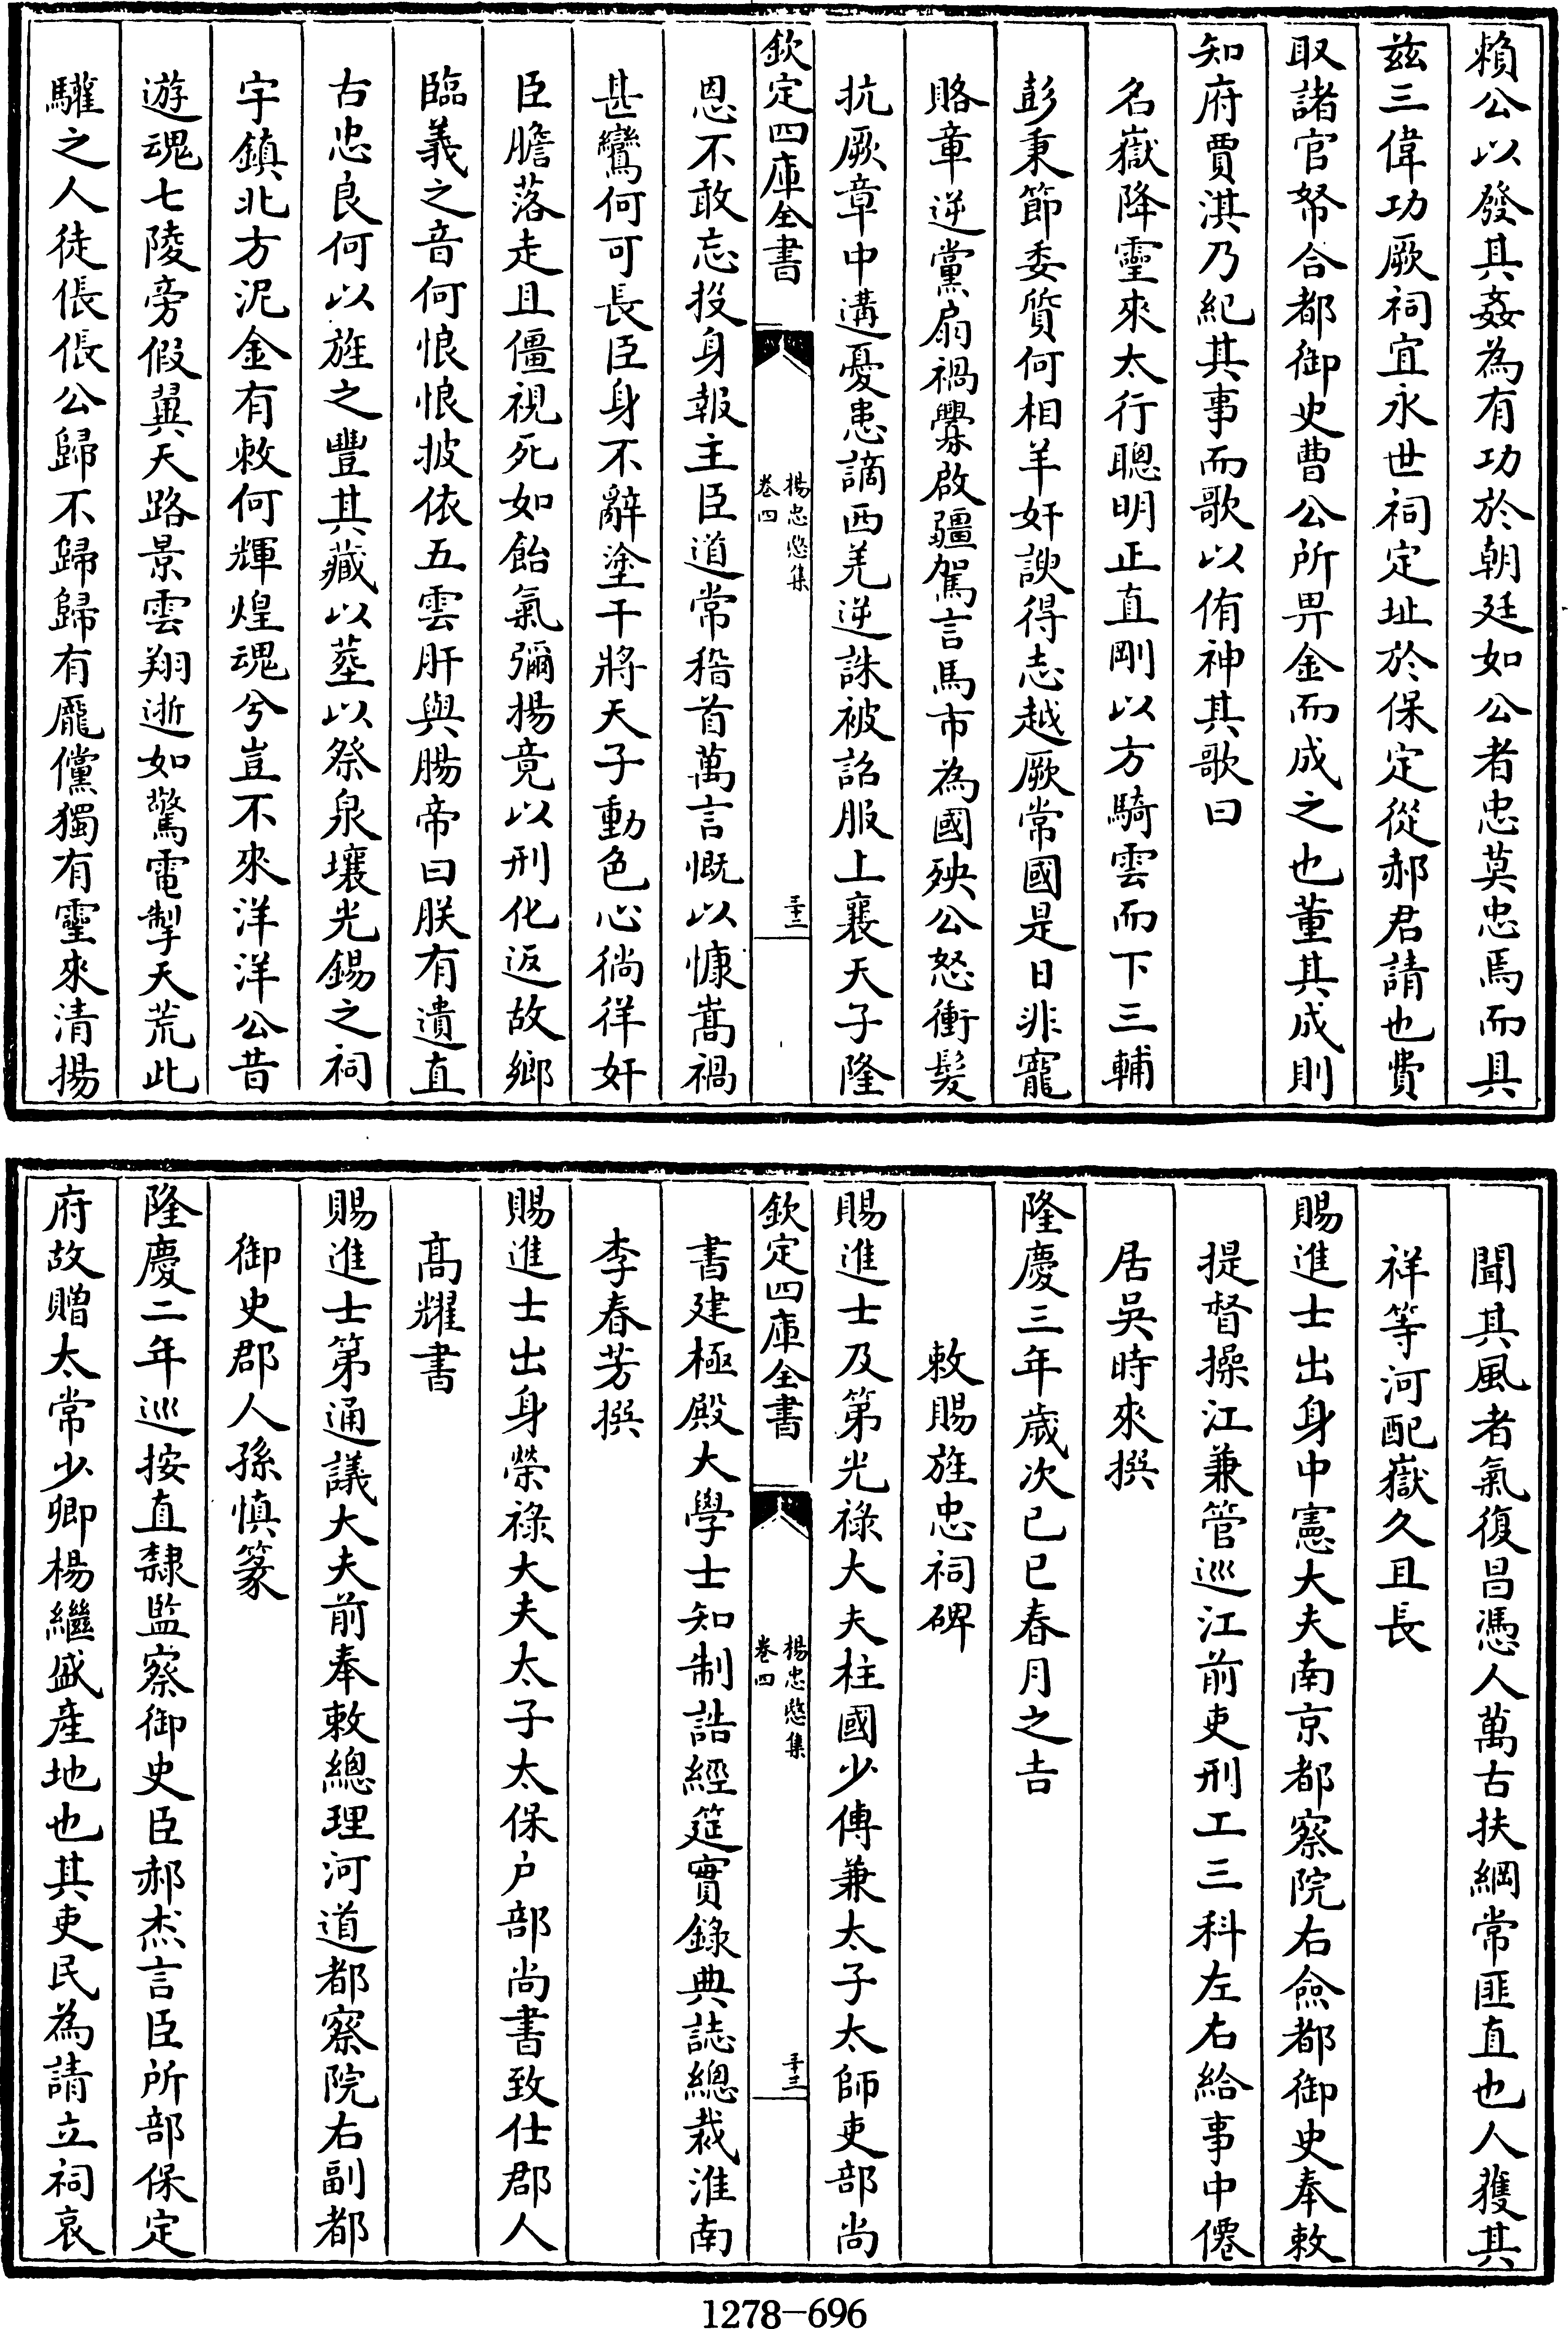 賴公以發其姦為有功於朝廷如公者忠莫忠焉而具
兹三偉功厥祠宜永世祠定址於保定從郝君請也費
取諸官帑合都御史曹公所畀金而成之也董其成則
知府賈淇乃紀其事而歌以侑神其歌曰
名嶽降靈來太行聰明正直剛以方騎雲而下三輔
彭秉節委質何相羊奸諛得志越厥常國是日非寵
賂章逆黨扇禍釁啟疆駕言馬市為國殃公怒衝髮
抗厥章中遘憂患謫西羌逆誅被詔服上襄天子隆
欽定四庫全書
楊忠愍集
卷四
三十二
恩不敢忘投身報主臣道常稽首萬言慨以慷嵩禍
甚鸞何可長臣身不辭塗干將天子動色心徜徉奸
臣膽落走且僵視死如飴氣彌揚竟以刑化返故鄉
臨義之音何悢悢披依五雲肝與腸帝曰朕有遺直
古忠良何以旌之豐其藏以塟以祭泉壤光錫之祠
宇鎮北方泥金有敕何輝煌魂兮豈不來洋洋公昔
遊魂七陵旁假翼天路景雲翔逝如驚電掣天荒此
驩之人徒倀倀公歸不歸歸有龐儻獨有靈來清揚
聞其風者氣復昌憑人萬古扶綱常匪直也人獲其
祥等河配嶽久且長
賜進士出身中憲大夫南京都察院右僉都御史奉敕
提督操江兼管巡江前吏刑工三科左右給事中僊
居吳時來撰
隆慶三年歲次已巳春月之吉
敕賜旌忠祠碑
賜進士及第光祿大夫柱國少傅兼太子太師吏部尚
欽定四庫全書
楊忠愍集
卷四
三十三
書建極殿大學士知制誥經筵實錄典誌總裁淮南
李春芳撰
賜進士出身榮祿大夫太子太保户部尚書致仕郡人
高耀書
賜進士第通議大夫前奉敕總理河道都察院右副都
御史郡人孫慎篆
隆慶二年巡按直隸監察御史臣郝杰言臣所部保定
府故贈太常少卿楊繼盛產地也其吏民為請立祠哀
1278-696